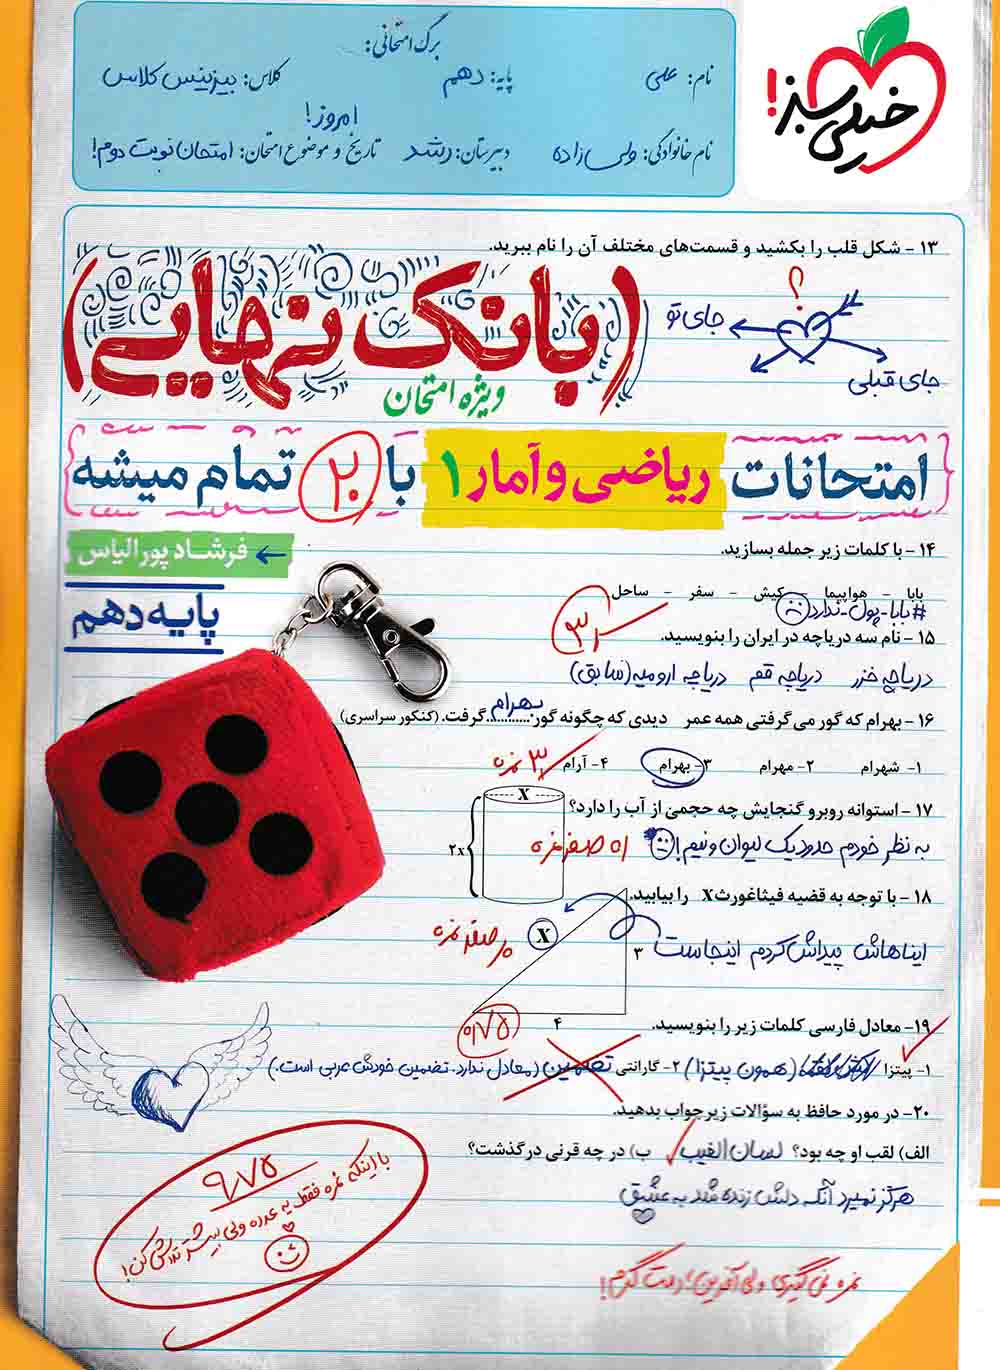 برگ امتحانی:
نام: علی
پایه: دهم
کلاس: بیزینس کلاس
امروز!
نام خانوادگی: ولی زاده
دبیرستان: رشد
تاریخ و موضوع امتحان: امتحان نوبت دوم!
خیلی سبز!
۱۳ - شکل قلب را بکشید و قسمت‌های مختلف آن را نام ببرید.
؟
جای تو
جای قبلی
(بانک نهایی)
ویژه امتحان
امتحانات ریاضی و آمار ۱ با ۲۰ تمام میشه
فرشاد پورالیاس
پایه دهم
۱۴ - با کلمات زیر جمله بسازید.
بابا - هواپیما - کیش - سفر - ساحل
#بابا-پول-ندارد
۱۵ - نام سه دریاچه در ایران را بنویسید.
دریاچه خزر دریاچه قم دریاچه ارومیه (سابق)
۱۶ - بهرام که گور می گرفتی همه عمر دیدی که چگونه گور...بهرام...گرفت. (کنکور سراسری)
۱- شهرام ۲- مهرام ۳- بهرام ۴- آرام
۳ نمره
۱۷ - استوانه روبرو گنجایش چه حجمی از آب را دارد؟
X
۲x
به نظر خودم حدود یک لیوان و نیم!
صفر نمره
۱۸ - با توجه به قضیه فیثاغورث X را بیابید.
ایناهاش پیداش کردم اینجاست
X
۳
۴
صفر نمره
۱۹- معادل فارسی کلمات زیر را بنویسید.
۰/۷۵
۱- پیتزا (همون پیتزا) ۲- گارانتی تضمین (معادل ندارد. تضمین خودش عربی است.)
۲۰- در مورد حافظ به سؤالات زیر جواب بدهید.
الف) لقب او چه بود؟ لسان الغیب ب) در چه قرنی درگذشت؟
هرگز نمیرد آنکه دلش زنده شد به عشق
نمره نمی گیری ولی آفرین! دمت گرم!
۹/۷۵
با اینکه نمره فقط یه عدده ولی بیشتر تلاش کن!